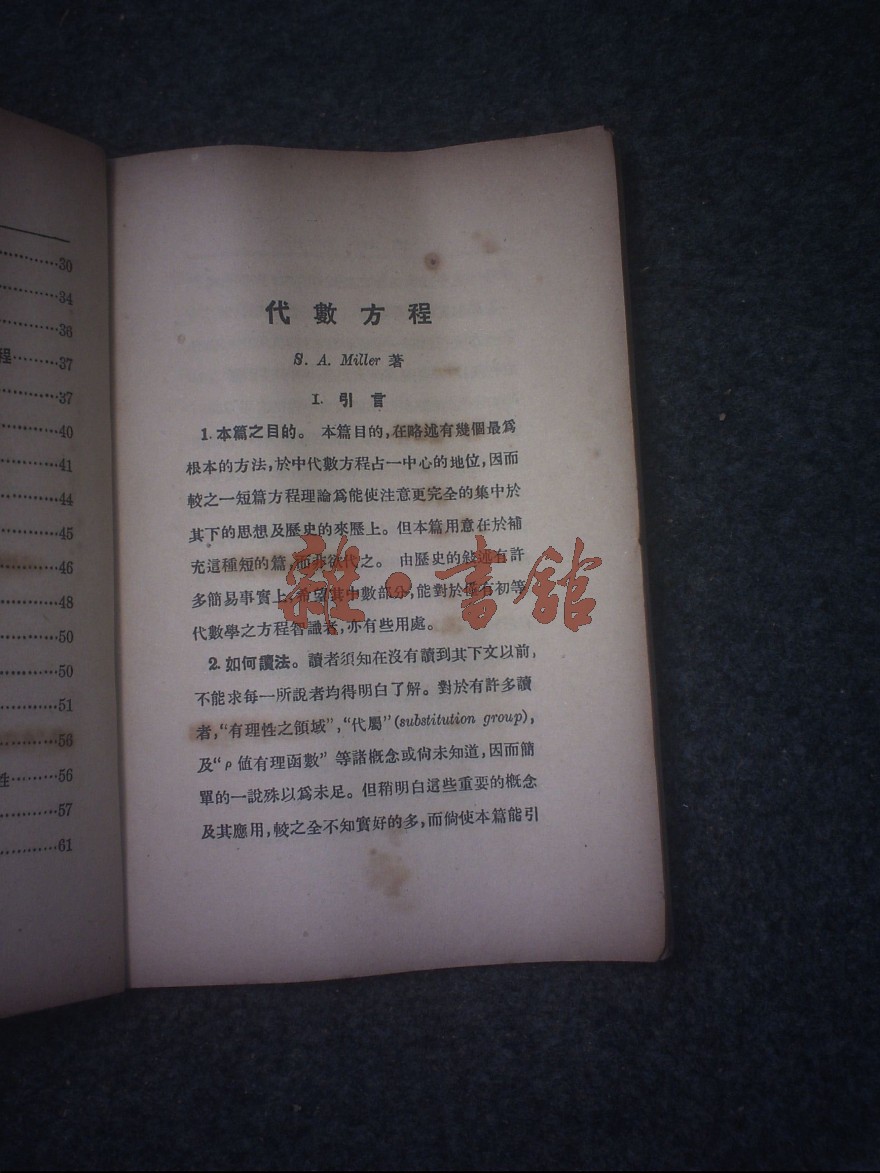 30
34
36
程 37
37
40
41
44
45
46
48
50
50
51
56
性 56
57
61
代數方程
S. A. Miller 著
I. 引言
1. 本篇之目的。 本篇目的,在略述有幾個最爲
根本的方法,於中代數方程占一中心的地位,因而
較之一短篇方程理論爲能使注意更完全的集中於
其下的思想及歷史的來歷上。但本篇用意在於補
充這種短的篇,而非欲代之。 由歷史的敍述有許
多簡易事實上,希望其中數部分,能對於僅有初等
代數學之方程智識者,亦有些用處。
2. 如何讀法。讀者須知在沒有讀到其下文以前,
不能求每一所說者均得明白了解。對於有許多讀
者,“有理性之領域”,“代屬”(substitution group),
及“ρ值有理函數” 等諸概念或尙未知道,因而簡
單的一說殊以爲未足。但稍明白這些重要的概念
及其應用,較之全不知實好的多,而倘使本篇能引
雜·書館